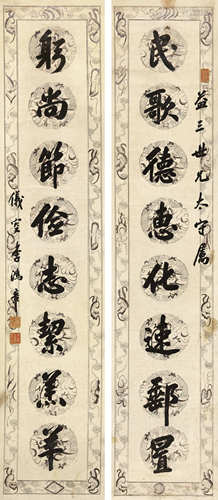 益三世兄太守属
民歌德惠化速郵置
躬尚節儉志絜羔羊
儀宣李鴻章